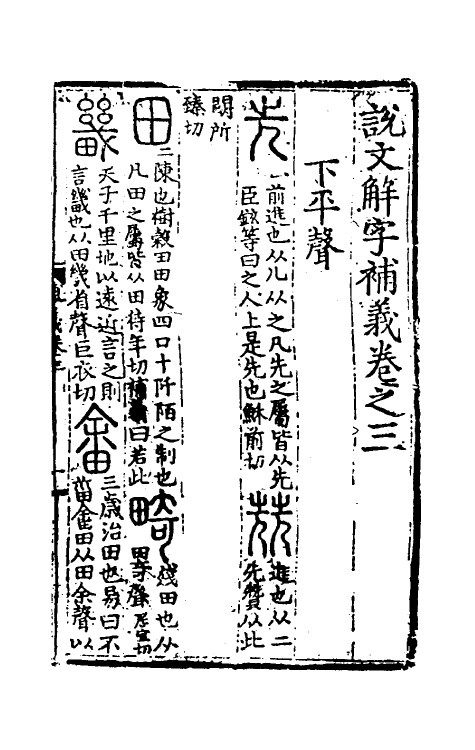 說文解字補義卷之三
下平聲
先
一前進也从儿从之凡先之屬皆从先
臣鉉等曰之人上是先也穌前切
兟
進也从二
先贊从此
闕所
臻切
田
二陳也樹穀曰田象四口十阡陌之制也
凡田之屬皆从田待年切補義曰若此
畸
殘田也从
田奇聲居宜切
畿
天子千里地以遠近言之則
言畿也从田幾省聲巨衣切
畬
三歲治田也易曰不
菑畬田从田余聲以